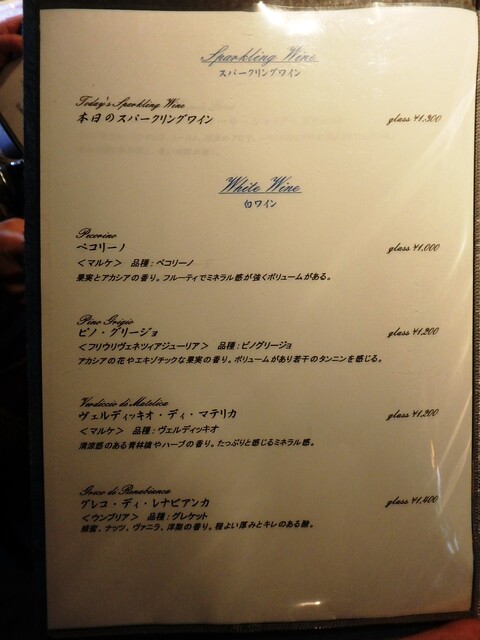 Sparkling Wine
スパークリングワイン
Today's Sparkling Wine
本日のスパークリングワイン glass ¥1,300
White Wine
白ワイン
Pecorino
ペコリーノ glass ¥1,000
＜マルケ＞ 品種：ペコリーノ
果実とアカシアの香り。フルーティでミネラル感が強くボリュームがある。
Pino Grigio
ピノ・グリージョ glass ¥1,200
＜フリウリヴェネツィアジューリア＞ 品種：ピノグリージョ
アカシアの花やエキゾチックな果実の香り。ボリュームがあり若干のタンニンを感じる。
Verdiccio di Matelica
ヴェルディッキオ・ディ・マテリカ glass ¥1,200
＜マルケ＞ 品種：ヴェルディッキオ
清涼感のある青林檎やハーブの香り。たっぷりと感じるミネラル感。
Greco di Renabianca
グレコ・ディ・レナビアンカ glass ¥1,400
＜ウンブリア＞ 品種：グレケット
蜂蜜、ナッツ、ヴァニラ、洋梨の香り。程よい厚みとキレのある酸。